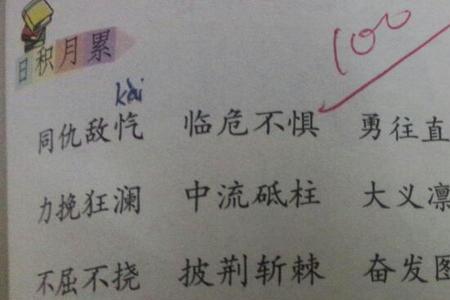 日积月累
100
kài
同仇敌忾 临危不惧 勇往直
力挽狂澜 中流砥柱 大义凛
不屈不挠 披荆斩棘 奋发图